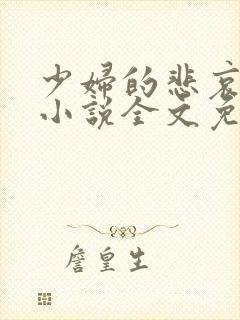 少婦的悲哀
小說全文免
詹皇生